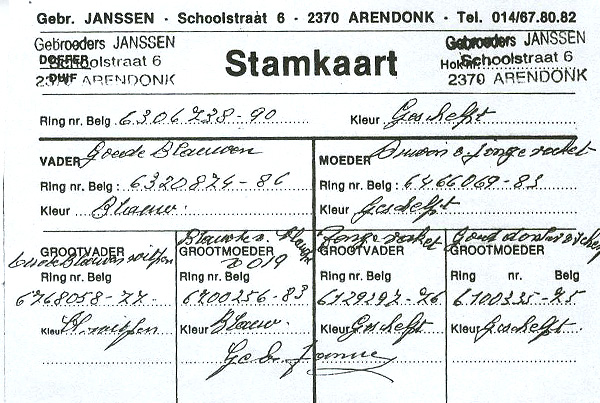 Gebr. JANSSEN - Schoolstraat 6 - 2370 ARENDONK - Tel. 014/67.80.82
Gebroeders JANSSEN
DOFFER
Schoolstraat 6
DUIF
2370 ARENDONK
Stamkaart
Gebroeders JANSSEN
Hok nr.
Schoolstraat 6
2370 ARENDONK
Ring nr. Belg. 6306738-90 Kleur Geschelpt
VADER Goede Blauwen
Ring nr. Belg: 6320874-86
Kleur Blauw.
MOEDER jonge raket
Ring nr. Belg: 6466069-83
Kleur Geschelpt
GROOTVADER
Ring nr. Belg
6768058-77-
Kleur
Blauwe v.
GROOTMOEDER
019
Ring nr. Belg
6700256-83
Kleur Blauw.
Jonge raket
GROOTVADER
Ring nr. Belg
6129397-76
Kleur Geschelpt
Goud
GROOTMOEDER
Ring nr. Belg
6100335-75
Kleur Geschelpt.
Gebr. Janssen